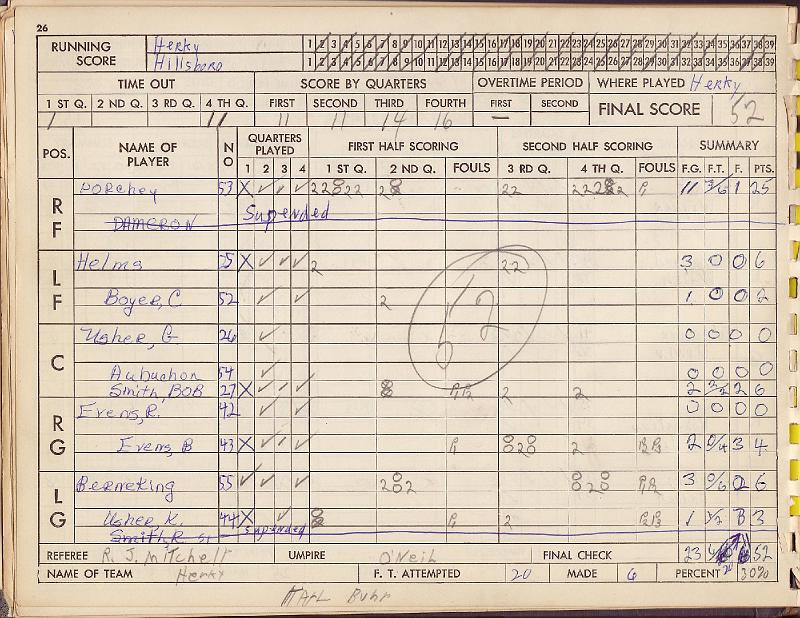 26
RUNNING SCORE Herky 1 2 3 4 5 6 7 8 9 10 11 12 13 14 15 16 17 18 19 20 21 22 23 24 25 26 27 28 29 30 31 32 33 34 35 36 37 38 39
Hillsboro 1 2 3 4 5 6 7 8 9 10 11 12 13 14 15 16 17 18 19 20 21 22 23 24 25 26 27 28 29 30 31 32 33 34 35 36 37 38 39
TIME OUT SCORE BY QUARTERS OVERTIME PERIOD WHERE PLAYED Herky
1 ST Q. 2 ND Q. 3 RD Q. 4 TH Q. FIRST SECOND THIRD FOURTH FIRST SECOND FINAL SCORE 52
1 11 11 11 14 16 —
POS. NAME OF PLAYER NO QUARTERS PLAYED FIRST HALF SCORING SECOND HALF SCORING SUMMARY
1 2 3 4 1 ST Q. 2 ND Q. FOULS 3 RD Q. 4 TH Q. FOULS F.G. F.T. F. PTS.
RF Porchey 53 X ✓ ✓ ✓ 22 22 P1 11 3/6 1 25
DAMERON Supended
LF Helms 25 X ✓ ✓ ✓ 2 22 3 0 0 6
Boyer, C 52 ✓ ✓ 2 1 0 0 2
52
C Usher, G 26 ✓ 0 0 0 0
Aubuchon 54 ✓ 0 0 0 0
Smith, BOB 27 X ✓ ✓ ✓ 8 P1P2 2 2 2 2/2 2 6
RG Evens, R. 42 ✓ ✓ 0 0 0 0
Evens, B 43 X ✓ ✓ ✓ P1 2 2 0/4 3 4
LG Berneking 55 ✓ ✓ ✓ 3 0/6 2 6
Usher, K. 44 X ✓ P1 2 1 1/2 3 3
Smith, R 51 Supended
REFEREE R. J. Mitchell UMPIRE O'Neil FINAL CHECK 23 52
NAME OF TEAM Herky F. T. ATTEMPTED 20 MADE 6 PERCENT 30%
Karl Buhr